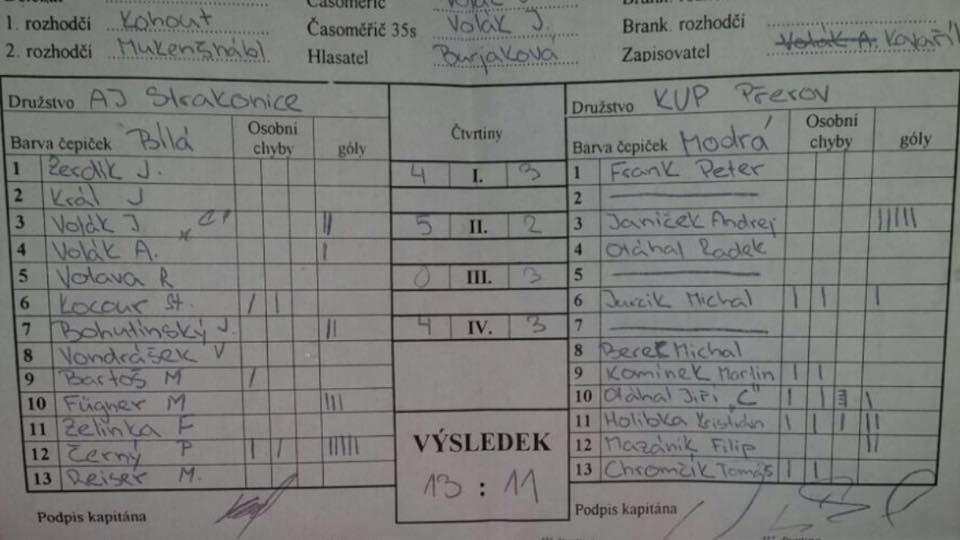 Časoměřič
1. rozhodčí Kohout Časoměřič 35s Volák J. Brank. rozhodčí
2. rozhodčí Mukenšnábl Hlasatel Burjaková Zapisovatel Volák A. Kovařík
Družstvo AJ Strakonice
Barva čepiček Bílá Osobní chyby góly
1 Žerdík J.
2 Král J
3 Volák J. "C" ||
4 Volák A. |
5 Volava R
6 Kocour St. | |
7 Bohutínský J. ||
8 Vondrášek V
9 Bartoš M |
10 Fügner M |||
11 Zelinka F
12 Černý P | | |||||
13 Reiser M.
Podpis kapitána
Čtvrtiny
4 I. 3
5 II. 2
0 III. 3
4 IV. 3
VÝSLEDEK
13 : 11
Družstvo KUP Přerov
Barva čepiček Modrá Osobní chyby góly
1 Frank Peter
2
3 Janíček Andrej ||||||
4 Oláhal Radek
5
6 Jurčík Michal | | |
7
8 Berek Michal
9 Komínek Martin | |
10 Oláhal Jiří "C" | | |
11 Holibka Kristián | | | ||
12 Mazáník Filip ||
13 Chromčík Tomáš | |
Podpis kapitána